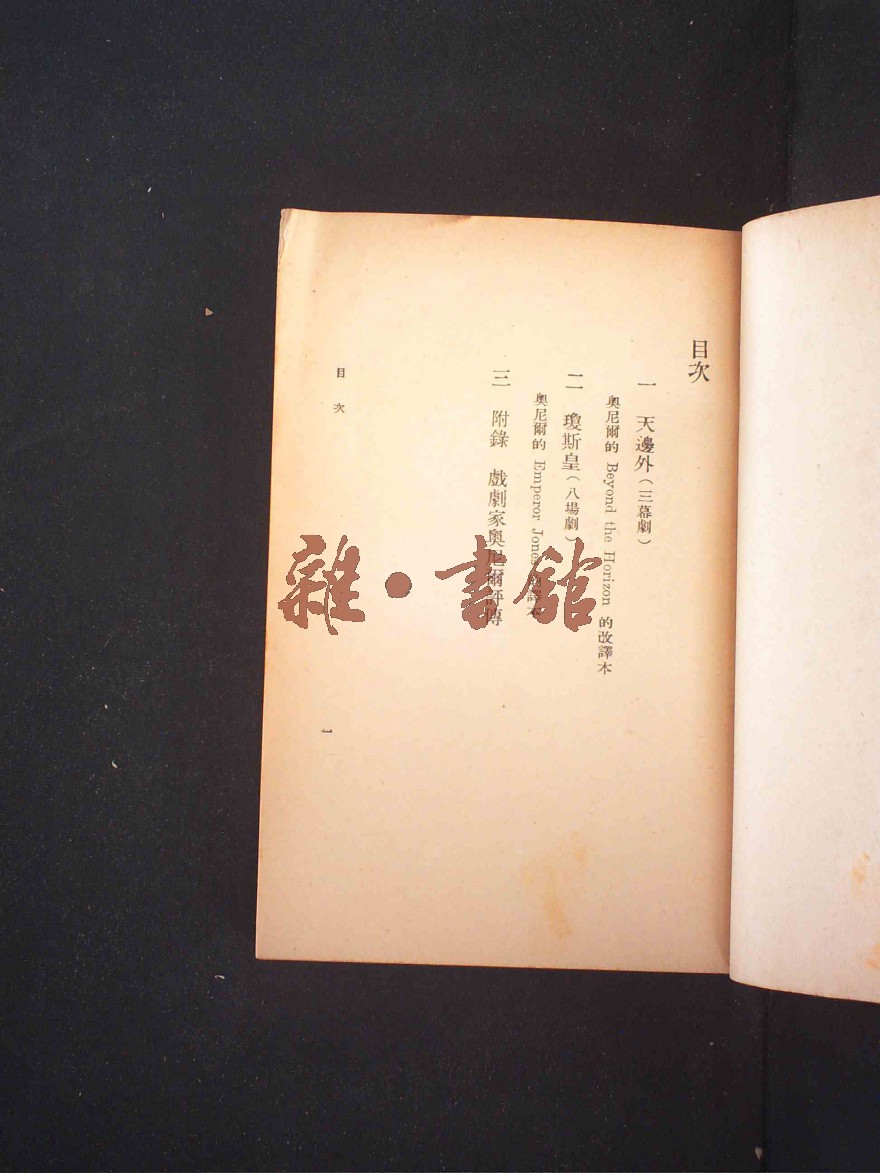 目次
一 天邊外（三幕劇）
奧尼爾的 Beyond the Horizon 的改譯本
二 瓊斯皇（八場劇）
奧尼爾的 Emperor Jones 的譯本
三 附錄 戲劇家奧尼爾評傳
目次
1
雜·書館